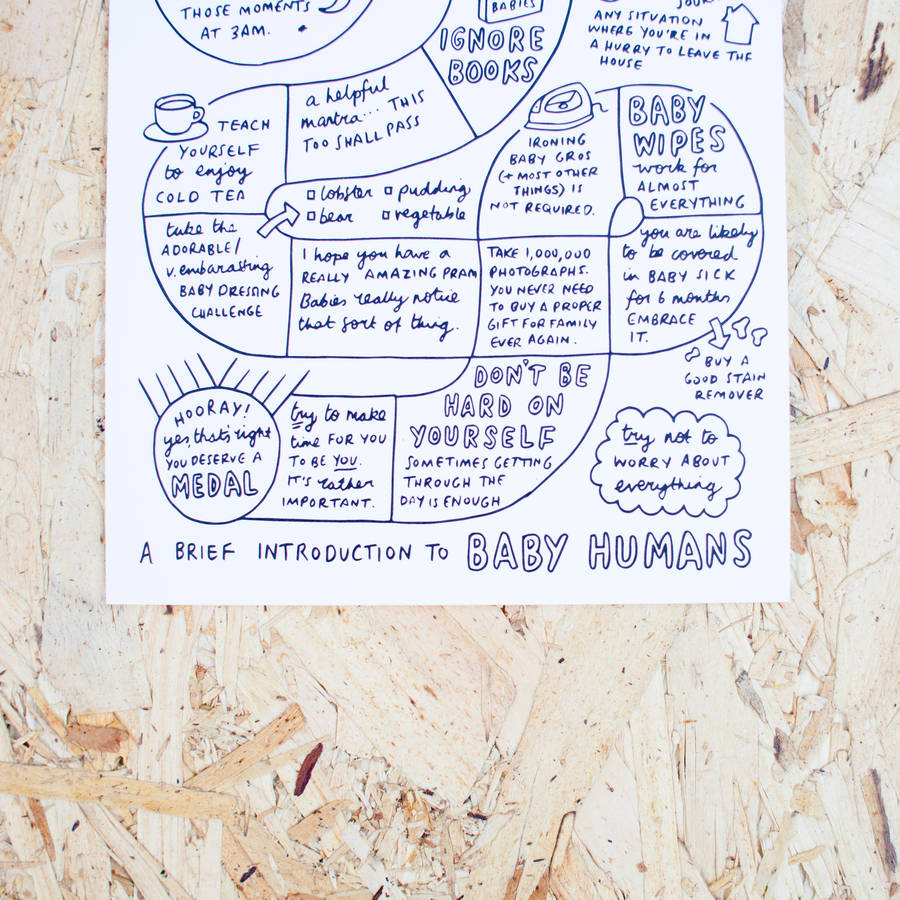 THOSE MOMENTS
AT 3AM.
BABIES
IGNORE
BOOKS
ANY SITUATION
WHERE YOU'RE IN
A HURRY TO LEAVE THE
HOUSE
TEACH
YOURSELF
to enjoy
COLD TEA
a helpful
mantra... THIS
TOO SHALL PASS
IRONING
BABY GROS
(+ MOST OTHER
THINGS) IS
NOT REQUIRED.
BABY
WIPES
work for
ALMOST
EVERYTHING
lobster pudding
bear vegetable
take the
ADORABLE/
v. embarassing
BABY DRESSING
CHALLENGE
I hope you have a
REALLY AMAZING PRAM
Babies really notice
that sort of thing.
TAKE 1,000,000
PHOTOGRAPHS.
YOU NEVER NEED
TO BUY A PROPER
GIFT FOR FAMILY
EVER AGAIN.
you are likely
to be covered
in BABY SICK
for 6 months
EMBRACE
IT.
BUY A
GOOD STAIN
REMOVER
HOORAY!
yes, that's right
YOU DESERVE A
MEDAL
try to make
time FOR YOU
TO BE YOU.
IT'S rather
IMPORTANT.
DON'T BE
HARD ON
YOURSELF
SOMETIMES GETTING
THROUGH THE
DAY IS ENOUGH
try not to
WORRY ABOUT
everything
A BRIEF INTRODUCTION TO BABY HUMANS